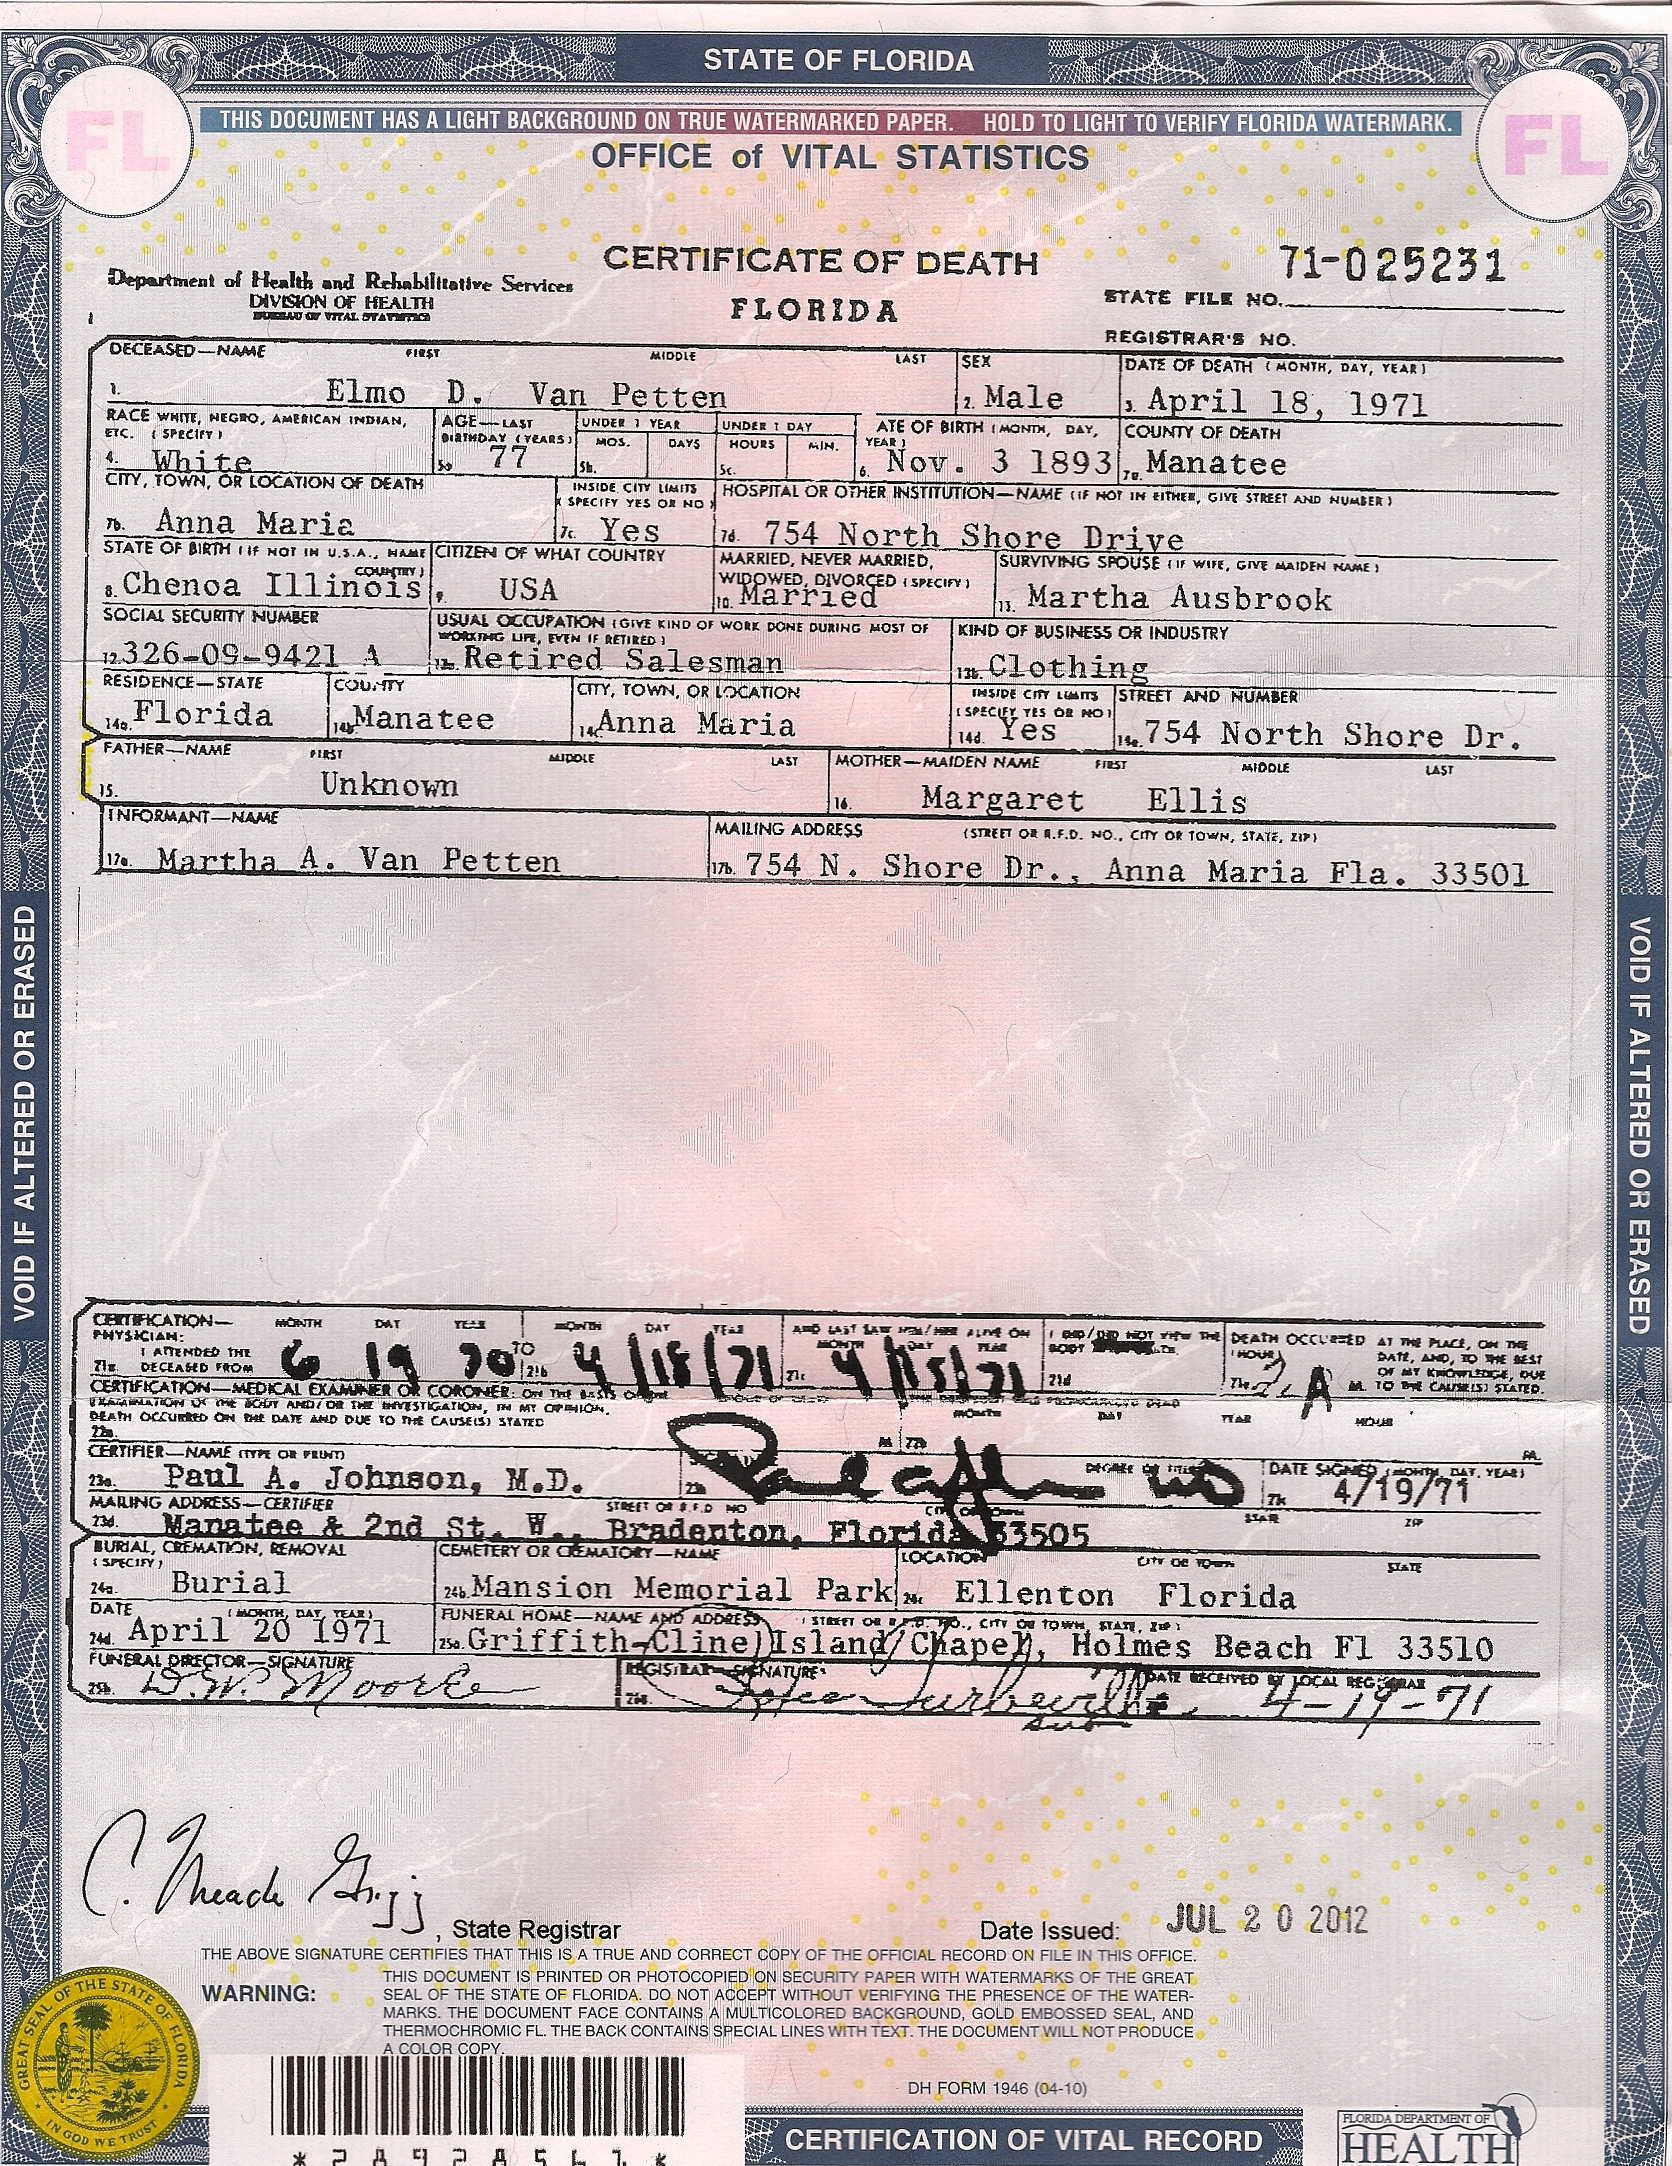 STATE OF FLORIDA
THIS DOCUMENT HAS A LIGHT BACKGROUND ON TRUE WATERMARKED PAPER. HOLD TO LIGHT TO VERIFY FLORIDA WATERMARK.
FL
FL
OFFICE of VITAL STATISTICS
CERTIFICATE OF DEATH
71-025231
Department of Health and Rehabilitative Services
DIVISION OF HEALTH
BUREAU OF VITAL STATISTICS
FLORIDA
STATE FILE NO.
REGISTRAR'S NO.
DECEASED—NAME FIRST MIDDLE LAST SEX DATE OF DEATH (MONTH, DAY, YEAR)
1. Elmo D. Van Petten 2. Male 3. April 18, 1971
RACE WHITE, NEGRO, AMERICAN INDIAN, ETC. (SPECIFY) AGE—LAST BIRTHDAY (YEARS) UNDER 1 YEAR MOS. DAYS UNDER 1 DAY HOURS MIN. ATE OF BIRTH (MONTH, DAY, YEAR) COUNTY OF DEATH
4. White 5a 77 5b. 5c. 6. Nov. 3 1893 7a. Manatee
CITY, TOWN, OR LOCATION OF DEATH INSIDE CITY LIMITS (SPECIFY YES OR NO) HOSPITAL OR OTHER INSTITUTION—NAME (IF NOT IN EITHER, GIVE STREET AND NUMBER)
7b. Anna Maria 7c. Yes 7d. 754 North Shore Drive
STATE OF BIRTH (IF NOT IN U.S.A., NAME COUNTRY) CITIZEN OF WHAT COUNTRY MARRIED, NEVER MARRIED, WIDOWED, DIVORCED (SPECIFY) SURVIVING SPOUSE (IF WIFE, GIVE MAIDEN NAME)
8. Chenoa Illinois 9. USA 10. Married 11. Martha Ausbrook
SOCIAL SECURITY NUMBER USUAL OCCUPATION (GIVE KIND OF WORK DONE DURING MOST OF WORKING LIFE, EVEN IF RETIRED) KIND OF BUSINESS OR INDUSTRY
12. 326-09-9421 A 13a. Retired Salesman 13b. Clothing
RESIDENCE—STATE COUNTY CITY, TOWN, OR LOCATION INSIDE CITY LIMITS (SPECIFY YES OR NO) STREET AND NUMBER
14a. Florida 14b. Manatee 14c. Anna Maria 14d. Yes 14e. 754 North Shore Dr.
FATHER—NAME FIRST MIDDLE LAST MOTHER—MAIDEN NAME FIRST MIDDLE LAST
15. Unknown 16. Margaret Ellis
INFORMANT—NAME MAILING ADDRESS (STREET OR R.F.D. NO., CITY OR TOWN, STATE, ZIP)
17a. Martha A. Van Petten 17b. 754 N. Shore Dr., Anna Maria Fla. 33501
VOID IF ALTERED OR ERASED
VOID IF ALTERED OR ERASED
CERTIFICATION—PHYSICIAN: MONTH DAY YEAR MONTH DAY YEAR AND LAST SAW HIM/HER ALIVE ON MONTH DAY YEAR I DID/DID NOT VIEW THE BODY DEATH OCCURRED (HOUR) AT THE PLACE, ON THE DATE, AND, TO THE BEST OF MY KNOWLEDGE, DUE TO THE CAUSE(S) STATED.
21a. I ATTENDED THE DECEASED FROM 6 19 70 TO 21b 4/18/71 21c 4/15/71 21d 21e 2 A M.
CERTIFICATION—MEDICAL EXAMINER OR CORONER: ON THE BASIS OF THE EXAMINATION OF THE BODY AND/OR THE INVESTIGATION, IN MY OPINION, DEATH OCCURRED ON THE DATE AND DUE TO THE CAUSE(S) STATED
22a. M 22b MONTH DAY YEAR HOUR M.
CERTIFIER—NAME (TYPE OR PRINT) DEGREE OR TITLE DATE SIGNED (MONTH, DAY, YEAR)
23a. Paul A. Johnson, M.D. 23b 4/19/71
MAILING ADDRESS—CERTIFIER STREET OR R.F.D NO CITY OR TOWN STATE ZIP
23d. Manatee & 2nd St. W., Bradenton, Florida 33505
BURIAL, CREMATION, REMOVAL (SPECIFY) CEMETERY OR CREMATORY—NAME LOCATION CITY OR TOWN STATE
24a. Burial 24b. Mansion Memorial Park 24c Ellenton Florida
DATE (MONTH, DAY, YEAR) FUNERAL HOME—NAME AND ADDRESS (STREET OR R.F.D. NO., CITY OR TOWN, STATE, ZIP)
24d. April 20 1971 25a. Griffith-Cline Island Chapel, Holmes Beach Fl 33510
FUNERAL DIRECTOR—SIGNATURE REGISTRAR—SIGNATURE DATE RECEIVED BY LOCAL REGISTRAR
25b. D.W. Moore 26a. 4-19-71
C. Meade Grigg
, State Registrar Date Issued: JUL 20 2012
THE ABOVE SIGNATURE CERTIFIES THAT THIS IS A TRUE AND CORRECT COPY OF THE OFFICIAL RECORD ON FILE IN THIS OFFICE.
WARNING: THIS DOCUMENT IS PRINTED OR PHOTOCOPIED ON SECURITY PAPER WITH WATERMARKS OF THE GREAT
SEAL OF THE STATE OF FLORIDA. DO NOT ACCEPT WITHOUT VERIFYING THE PRESENCE OF THE WATER-
MARKS. THE DOCUMENT FACE CONTAINS A MULTICOLORED BACKGROUND, GOLD EMBOSSED SEAL, AND
THERMOCHROMIC FL. THE BACK CONTAINS SPECIAL LINES WITH TEXT. THE DOCUMENT WILL NOT PRODUCE
A COLOR COPY.
GREAT SEAL OF THE STATE OF FLORIDA
IN GOD WE TRUST
DH FORM 1946 (04-10)
CERTIFICATION OF VITAL RECORD
FLORIDA DEPARTMENT OF
HEALTH